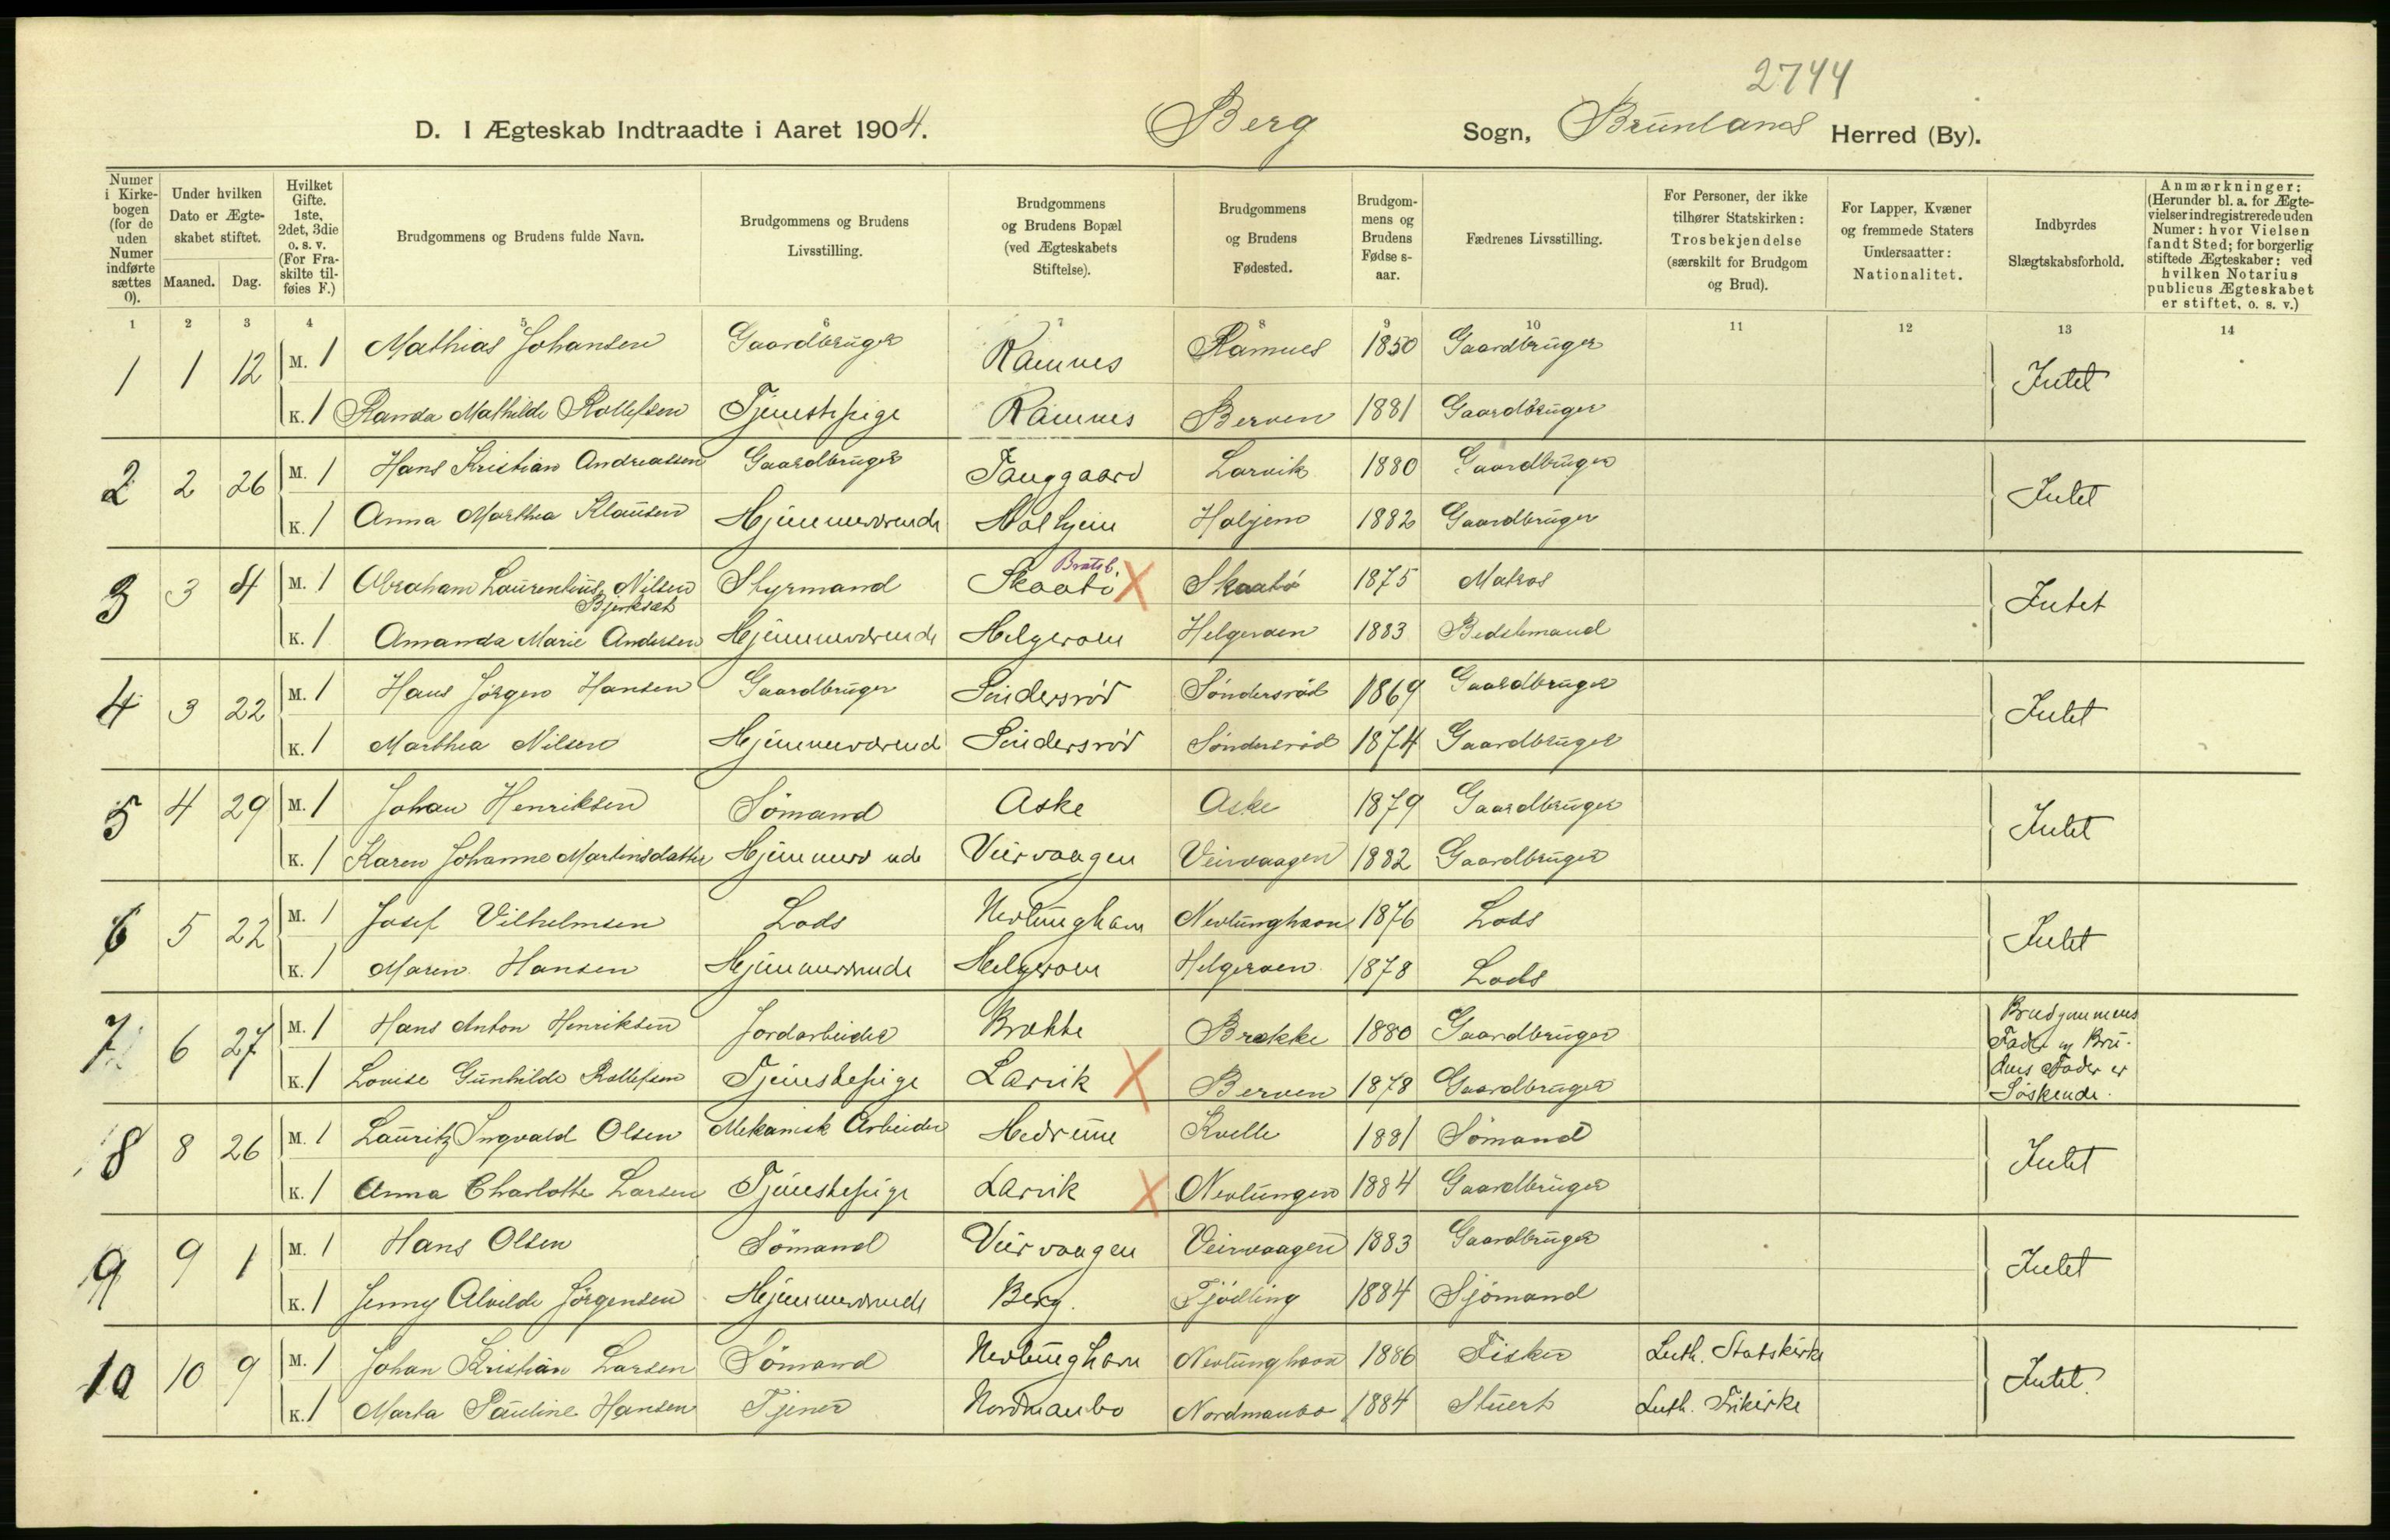 2744
D. I Ægteskab Indtraadte i Aaret 1904. Berg Sogn, Brunlanes Herred (By).
Numer i Kirkebogen (for de uden Numer indførte sættes 0). | Under hvilken Dato er Ægteskabet stiftet. Maaned. Dag. | Hvilket Gifte. 1ste, 2det, 3die o. s. v. (For Fraskilte tilføies F.) | Brudgommens og Brudens fulde Navn. | Brudgommens og Brudens Livsstilling. | Brudgommens og Brudens Bopæl (ved Ægteskabets Stiftelse). | Brudgommens og Brudens Fødested. | Brudgommens og Brudens Fødselsaar. | Fædrenes Livsstilling. | For Personer, der ikke tilhører Statskirken: Trosbekjendelse (særskilt for Brudgom og Brud). | For Lapper, Kvæner og fremmede Staters Undersaatter: Nationalitet. | Indbyrdes Slægtskabsforhold. | Anmærkninger: (Herunder bl. a. for Ægtevielser indregistrerede uden Numer: hvor Vielsen fandt Sted; for borgerlig stiftede Ægteskaber: ved hvilken Notarius publicus Ægteskabet er stiftet, o. s. v.)
1 2 3 4 5 6 7 8 9 10 11 12 13 14
1 1 12 M. 1 Mathias Johansen Gaardbruger Ramnes Ramnes 1850 Gaardbruger Intet
K. 1 Randa Mathilde Rollefsen Tjenestepige Ramnes Berven 1881 Gaardbruger
2 2 26 M. 1 Hans Kristian Andreassen Gaardbruger Fauggaard Larvik 1880 Gaardbruger Intet
K. 1 Anna Marthea Klausen Hjemmeværende Holhjem Holjem 1882 Gaardbruger
3 3 4 M. 1 Abraham Laurentius Nilsen Styrmand Skaatö Bratsb. X Skaatö 1875 Matros Intet
Bjerksæt
K. 1 Amanda Marie Andersen Hjemmeværende Helgeroen Helgeroen 1883 Bedstemand
4 3 22 M. 1 Hans Jörgen Hansen Gaardbruger Söndersröd Söndersröd 1869 Gaardbruger Intet
K. 1 Marthea Nilsen Hjemmeværend Söndersröd Söndersröd 1874 Gaardbruger
5 4 29 M. 1 Johan Henriksen Sömand Aske Aske 1879 Gaardbruger Intet
K. 1 Karen Johanne Martinsdatter Veirvaagen Veirvaagen 1882 Gaardbruger
6 5 22 M. 1 Josef Vilhelmsen Lods Nevlunghavn Nevlunghavn 1876 Lods Intet
K. 1 Maren Hansen Hjemmeværende Helgeroen Helgeroen 1878 Lods
7 6 27 M. 1 Hans Anton Henriksen Jordarbeider Brække Brække 1880 Gaardbruger Brudgommens
Fader og Bru-
K. 1 Lovise Gunhilde Rollefsen Tjenestepige Larvik X Berven 1878 Gaardbruger dens Fader er
Söskende.
8 8 26 M. 1 Lauritz Ingvald Olsen Mekanisk Arbeider Hedrum Kvelle 1881 Sömand Intet
K. 1 Anna Charlothe Larsen Tjenestepige Larvik X Nevlungen 1884 Gaardbruger
9 9 1 M. 1 Hans Olsen Sömand Veirvaagen Veirvaagen 1883 Gaardbruger Intet
K. 1 Jenny Alvilde Jörgensen Hjemmeværende Berg. Fjödling 1884 Sjömand
10 10 9 M. 1 Johan Kristian Larsen Sömand Nevlunghavn Nevlunghavn 1886 Fisker Luth. Statskirke Intet.
K. 1 Marta Pauline Hansen Tjener Nordmanbo Nordmanbo 1884 Stuert Luth. Frikirke